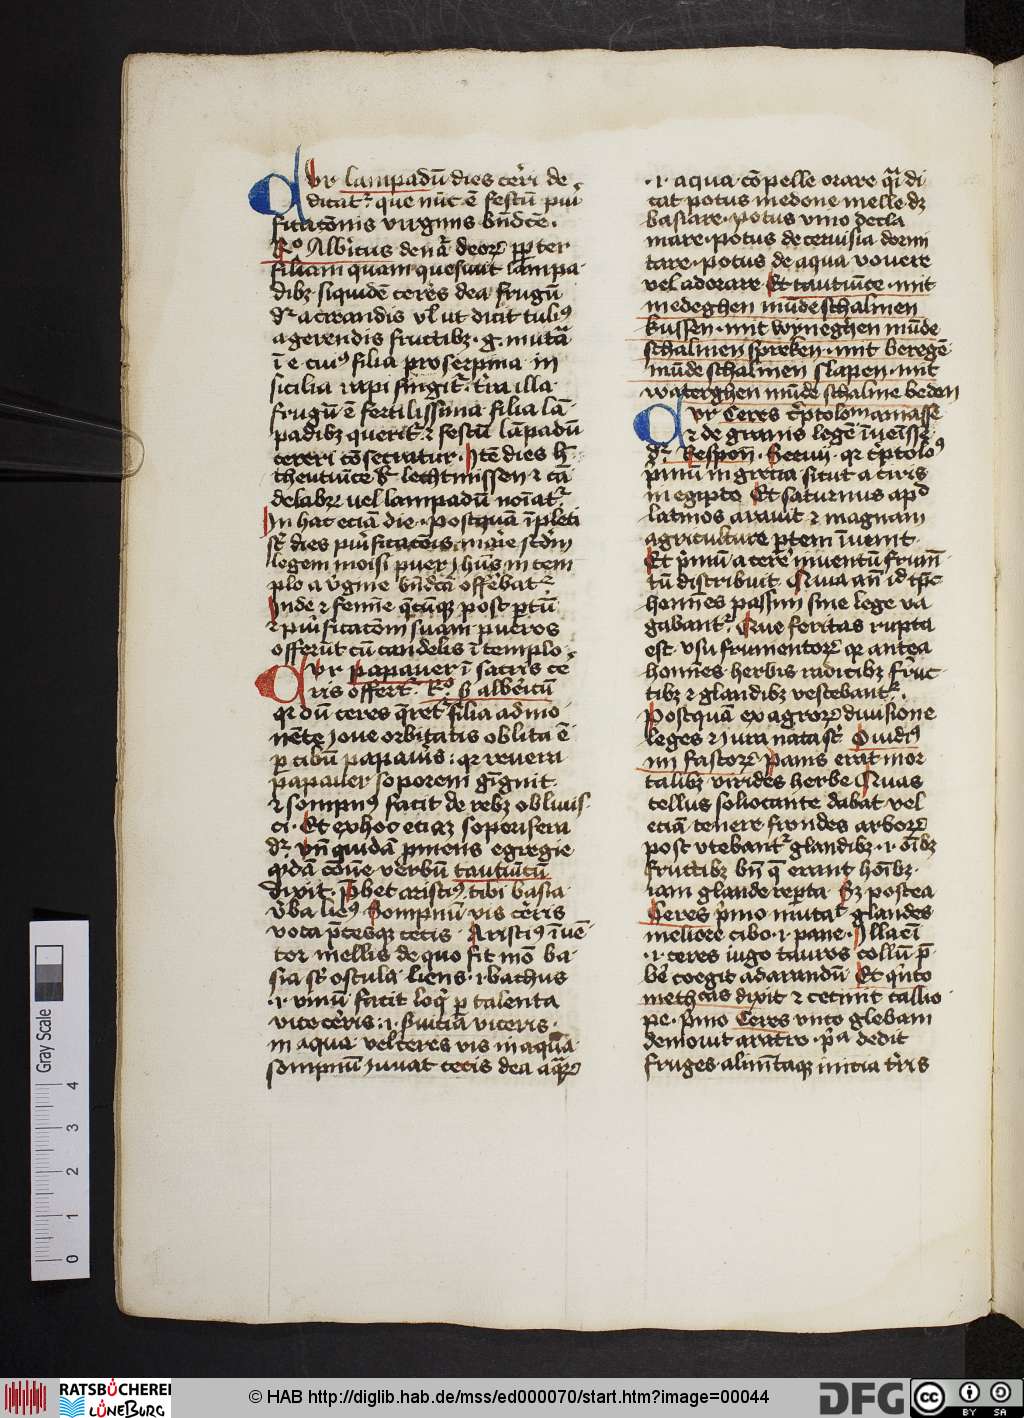 Cvr lampadū dies cereri de
dicatᷣ que nūc ē festū puri
ficatōnis virginis bn̄dcē·
Rᵒ Albr̄icus de nāᵃ deoꝝ ꝓpter
filiam quam quesiuit lampa
dibꝫ siquidē ceres dea frugū
dꝛ a creandis vl̄ ut dicit tuliꝰ
a gerendis fructibꝫ· g· mutāᵃ
ī c cuiꝰ filia proserpina in
sicilia rapi fingitᷣ t̄ra illa
frugū ē fertilissima filia lā
padibꝫ queritᷣ ⁊ festū lāpadū
cereri cōsecratur· Itē dies h̄
theutuīce dꝛ lechtmissen ⁊ cā
delabꝝ vel lampadū noīatᷣ
In hac eciā die· postquā īpleti
st̄ dies purificatōis marie scd̄m
legem moisi puer Jhūs in tem
plo a v̄gine bn̄dcā offerebatᷣ
Inde ⁊ femīe qͣcūqꝫ post ꝑtū
⁊ purificatōm suam pueros
offerūt cū candelis ī templo·
Cvr papauer ī sacris ce
ris offertᷣ· Rᵒ ẜ albericū
qꝛ dū ceres q̄retᷣ filiā admo
nēte Joue orbitatis oblita ē
ꝑ cibū papaueris: qꝛ reuera
papauer soporem gīgnit
⁊ sompnꝰ facit de rebꝫ obliuis
ci· Et ex hoc eciaꝫ soporifera
dꝛ· vn̄ quidā pruens egregie
qͥdā cōue verbū tautuīcū
dixit· p̄bet aristiꝰ tibi basia
v̄ba lieꝰ Sompnū vis cēris
vota p̄cesqꝫ cecis· Aristiꝰ īuē
tor mellis de quo fit mō ba
sia st̄ oscula liens· i· bachus
·i· vinū facit loqͥ ꝑ talenta
vice cēris: i· ẜuicia viceris·
in aqua vel ceres vis in aquā
sompnū Juuat cecis dea aqͣꝝ
·i· aqua cōpelle orare qͣi di
cat potus medone melle dꝫ
basiare· potus vino decla
mare· potus de ceruisia dormi
tare· potus de aqua vouere
vel adorare Et tautuīce· mit
medeghen mūde schalmen
kussen· mit wyneghen mūde
schalmen spreken· mit beregē
mūde schalmen slapen· mit
waterghen mūde schalme beden
Cvr Ceres t̄ptolom amasse
⁊ de granis legē īuēisse·
dꝛ· Respon̄· Seruu· qꝛ t̄ptolōꝰ
pͥmū in grecia sicut a ciris
in egipto Et saturnus apd
latinos arauit ⁊ magnam
agriculture ꝑtem īuenit·
Et pͥmū a cerere inuentū frum̄
tū distribuit Nua an̄ id tꝑe
homīes passim sine lege va
gabantᷣ Que feritas rupta
est vsu frumentoꝝ qꝛ antea
homīes herbis radicibꝫ fruc
tibꝫ ⁊ glandibꝫ vescebantᷣ·
Postquā ex agroꝝ diuisione
leges ⁊ Jura nata st̄· Ouidiꝰ
iiii fastoꝝ Panis erat mor
talibꝫ virides herbe Quas
tellus soliocante dabat vel
eciā tenere frondes arboꝝ
post vtebantᷣ glandibꝫ· i· oībꝫ
fructibꝫ bn̄ q̄ erant hoībꝫ·
iam glande reperta· Sꝫ postea
Ceres pͥmo mutatᷣ glandes
meliore cibo· i· pane· Illa eī
·i· ceres iugo tauros collū p̄
bere coegit ad arandū· Et qͥnto
metheas dixit ⁊ cetinit callio
pe· pͥmo Ceres vnco glebam
demouit aratro· pͥa dedit
fruges· alimētaqꝫ inicia t̄ris
Gray Scale
0 1 2 3 4
RATSBÜCHEREI
LÜNEBURG
© HAB http://diglib.hab.de/mss/ed000070/start.htm?image=00044
DFG
cc BY SA